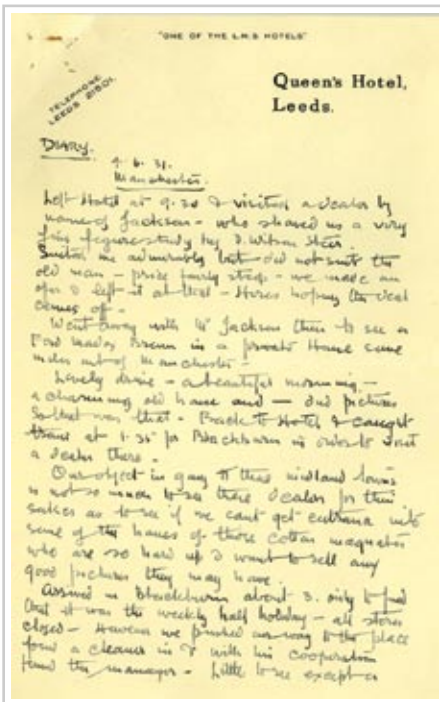 "ONE OF THE L.M.S HOTELS"
TELEPHONE
LEEDS 21501.
Queen's Hotel,
Leeds.
DIARY.
9. 6. 31.
Manchester.
Left Hotel at 9.30 & visited a dealer by
name of Jackson - who showed us a very
fine figure study by P. Wilson Steer.
Suited me admirably but did not suit the
old man - price fairly steep - we made an
offer & left it at that - Heres hoping the deal
comes off -
Went away with Mr Jackson then to see a
Ford Madox Brown in a private Home some
miles out of Manchester -
Lovely drive - a beautiful morning -
a charming old home and - dud pictures
So that was that - Back to Hotel & caught
train at 1.35 for Blackburn in order to visit
a dealer there -
Our object in going to these midland towns
is not so much to see these dealers for their
sakes as to see if we cant get entrance into
some of the homes of those cotton magnates
who are so hard up & want to sell any
good pictures they may have.
Arrived in Blackburn about 3. only to find
that it was the weekly half holiday - all stores
closed - However we pushed our way to the place
found a cleaner in & with his cooperation
found the manager - Little to see except a